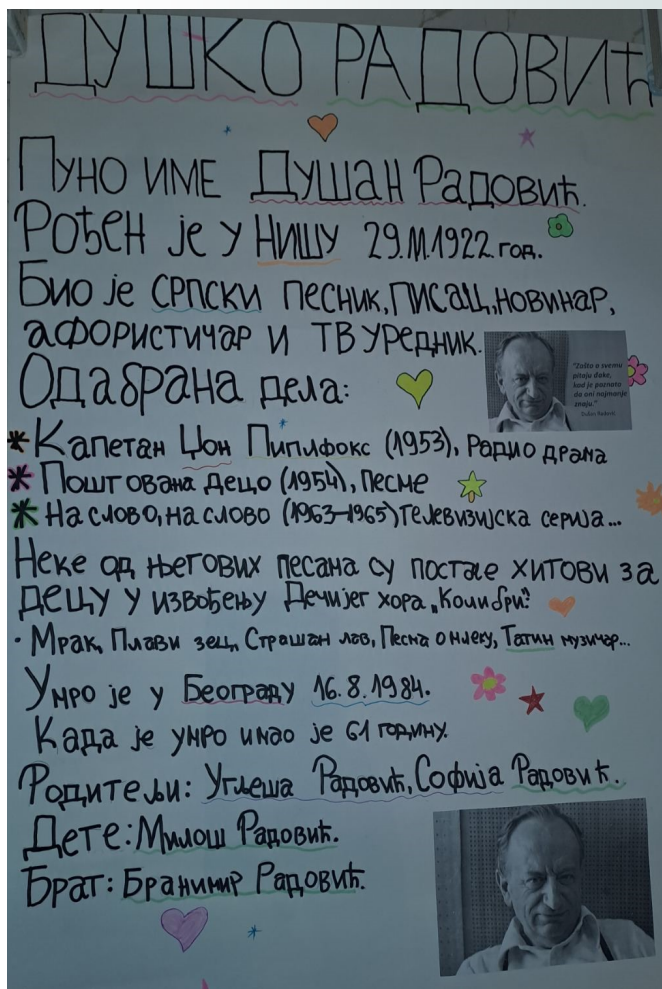 ДУШКО РАДОВИЋ
ПУНО ИМЕ ДУШАН РАДОВИЋ.
РОЂЕН ЈЕ У НИШУ 29.XI.1922. ГОД.
БИО ЈЕ СРПСКИ ПЕСНИК, ПИСАЦ, НОВИНАР,
АФОРИСТИЧАР И ТВ УРЕДНИК.
"Zašto o svemu
pitaju đake,
kad je poznato
da oni najmanje
znaju."
Dušan Radović
ОДАБРАНА ДЕЛА:
* КАПЕТАН ЏОН ПИПЛФОКС (1953), РАДИО ДРАМА
* ПОШТОВАНА ДЕЦО (1954), ПЕСМЕ
* НА СЛОВО, НА СЛОВО (1963-1965) ТЕЛЕВИЗИЈСКА СЕРИЈА...
НЕКЕ ОД ЊЕГОВИХ ПЕСАМА СУ ПОСТАЛЕ ХИТОВИ ЗА
ДЕЦУ У ИЗВОЂЕЊУ ДЕЧИЈЕГ ХОРА „КОЛИБРИ":
· МРАК, ПЛАВИ ЗЕЦ, СТРАШАН ЛАВ, ПЕСМА О МЛЕКУ, ТАТИН МУЗИЧАР...
УМРО ЈЕ У БЕОГРАДУ 16.8.1984.
КАДА ЈЕ УМРО ИМАО ЈЕ 61 ГОДИНУ.
РОДИТЕЉИ: УГЉЕША РАДОВИЋ, СОФИЈА РАДОВИЋ.
ДЕТЕ: МИЛОШ РАДОВИЋ.
БРАТ: БРАНИМИР РАДОВИЋ.